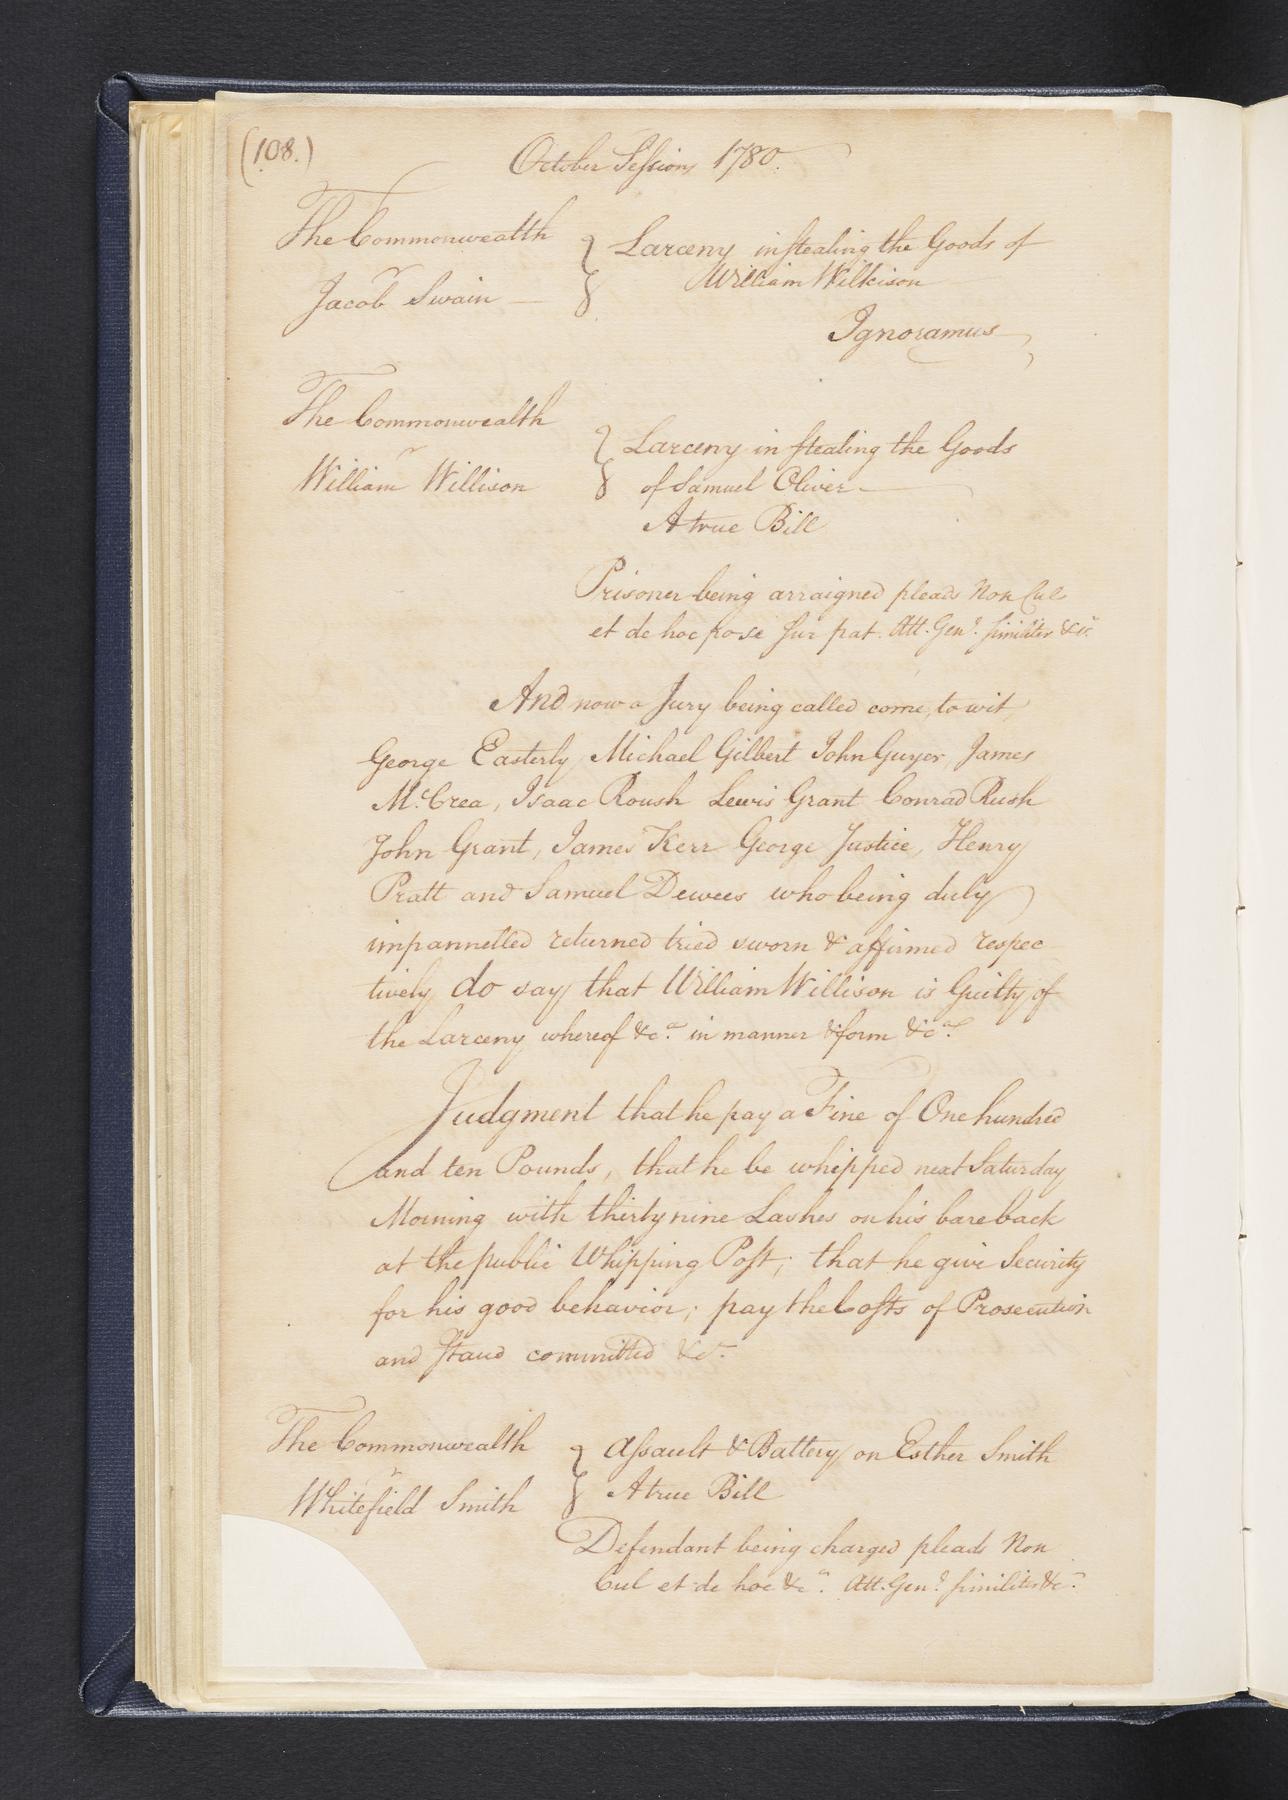 (108.)
October Sessions 1780.
The Commonwealth
v
Jacob Swain
Larceny in stealing the Goods of
William Wilkison
Ignoramus
The Commonwealth
v
William Willison
Larceny in stealing the Goods
of Samuel Oliver
A true Bill
Prisoner being arraigned pleads Non Cul
et de hoc pose sur pat. Att. Genl. similiter &ca.
And now a Jury being called come, to wit,
George Easterly Michael Gilbert John Guyer, James
McCrea, Isaac Roush Lewis Grant Conrad Rush
John Grant, James Kerr George Justice, Henry
Pratt and Samuel Dewees who being duly
impannelled returned tried sworn & affirmed respec
tively do say that William Willison is Guilty of
the Larceny whereof &ca. in manner & form &ca.
Judgment that he pay a Fine of One hundred
and ten Pounds, that he be whipped next Saturday
Morning with thirty nine Lashes on his bare back
at the public Whipping Post; that he give Security
for his good behavior; pay the Costs of Prosecution
and stand committed &ca.
The Commonwealth
v
Whitefield Smith
Assault & Battery on Esther Smith
A true Bill
Defendant being charged pleads Non
Cul et de hoc &ca. Att. Genl. similiter &ca.